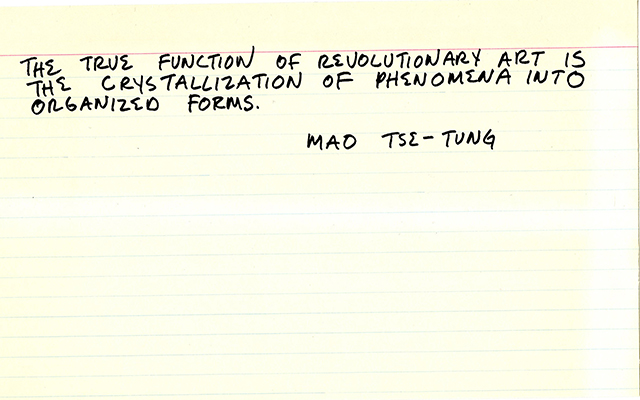 THE TRUE FUNCTION OF REVOLUTIONARY ART IS
THE CRYSTALLIZATION OF PHENOMENA INTO
ORGANIZED FORMS.
MAO TSE-TUNG